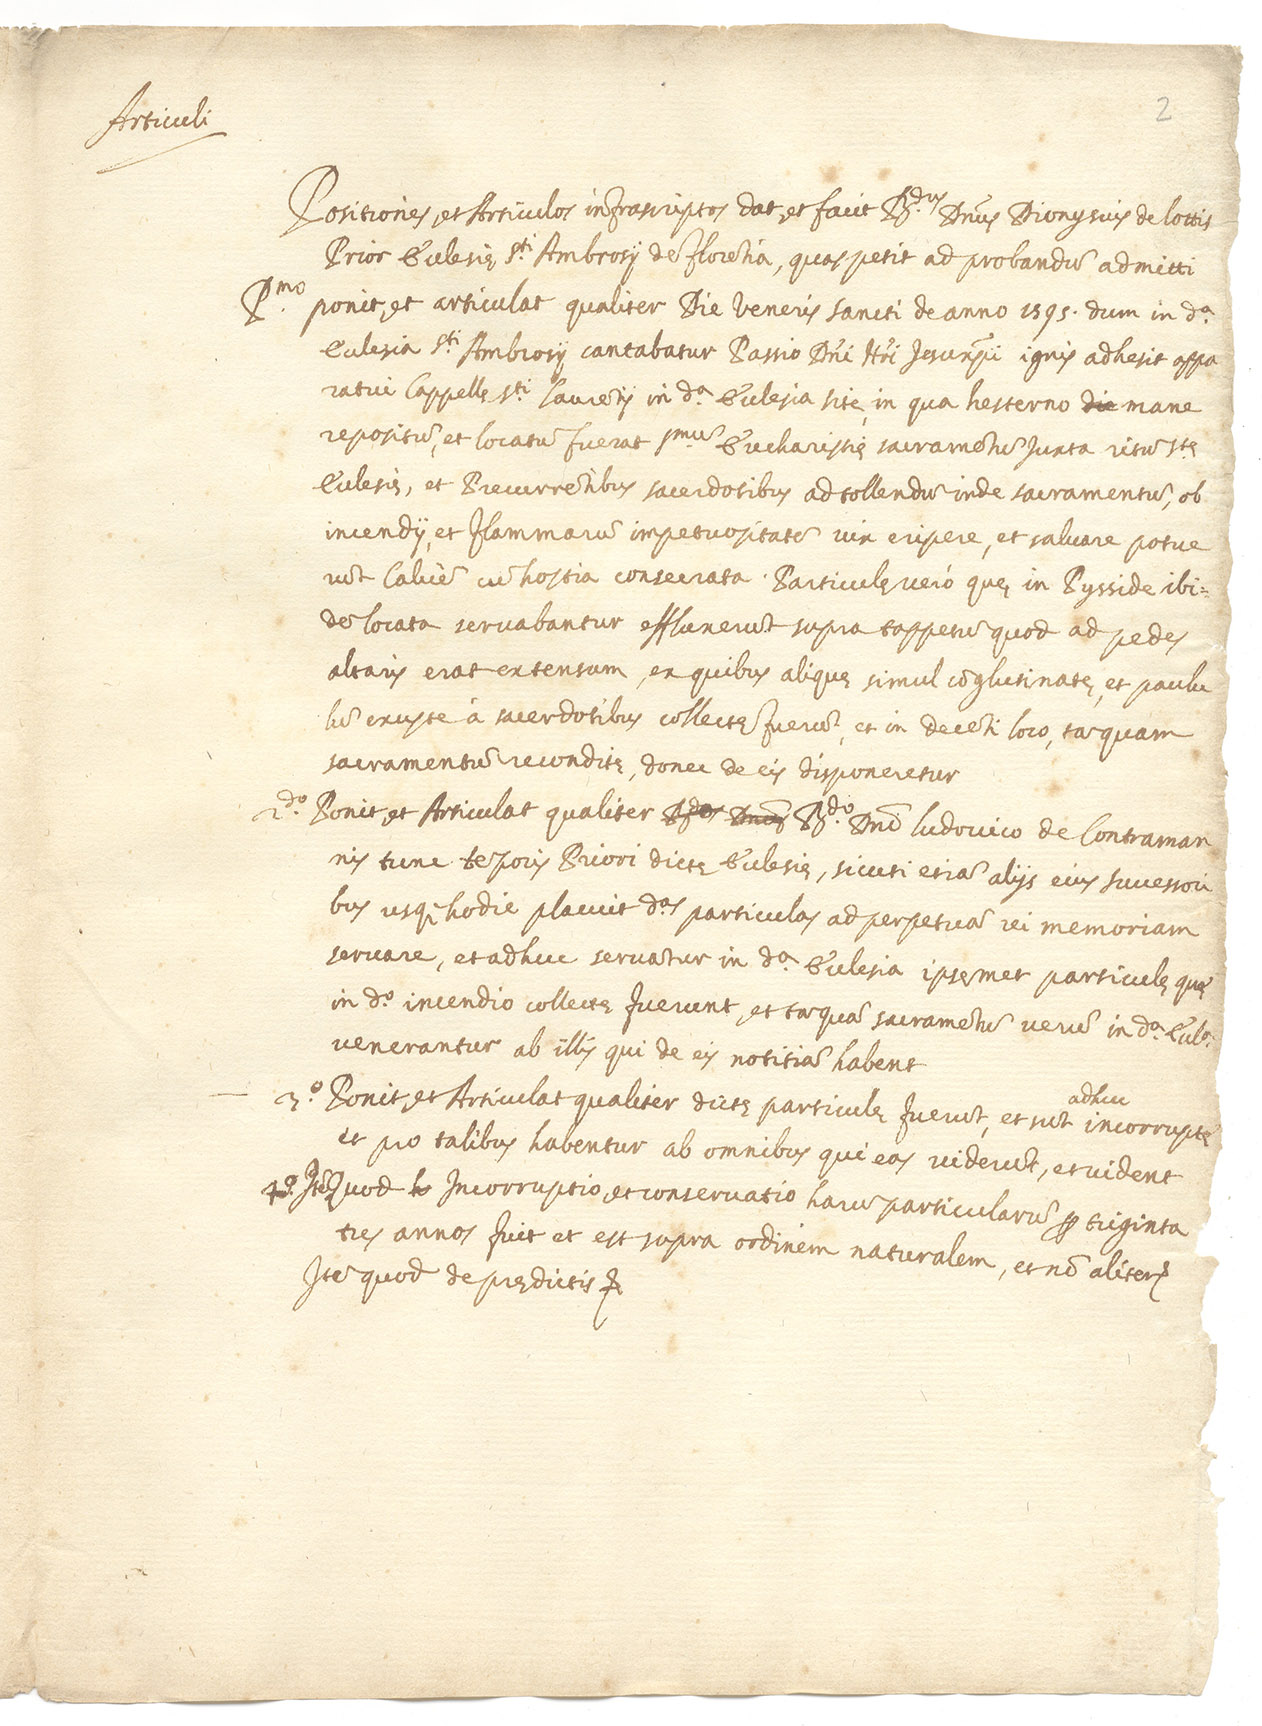 2
Articuli
Positiones, et Articulos infrascriptos dat, et facit R.dus Dnus Dionysius de lottis
Prior Ecclesię S.ti Ambrosij de florētia, quas petit ad probandū admitti
P.mo ponit, et articulat qualiter Die Veneris sancti de anno 1595. dum in d.a
Ecclesia S.ti Ambrosij cantabatur Passio Dñi Nr̃i Jesu Xp̃i ignis adhesit appa
ratui Cappellę S.ti laurētij in d.a Ecclesia sitę, in qua hesterno die mane
repositū, et locatū fuerat s.mū Eucharistię sacramētū Juxta ritū S.tę
Ecclesię, et Precurrētibus sacerdotibus ad tollendū inde sacramentū, ob
incendij, et flammarū impetuositatē vix eripere, et salvare potue
rūt Calicē cū hostia consecrata. Particulę verò quę in Pysside ibi=
dē locata servabantur effluxerūt supra tappetū quod ad pedes
altaris erat extensum, ex quibus aliquę simul cōglutinatę, et paulu
lū exustę à sacerdotibus collectę fuerūt, et in decēti loco, tāquam
sacramentū reconditę, donec de eis disponeretur
2.do Ponit, et Articulat qualiter R.do Dnō ludovico de Contraman
nis tunc tēporis Priori dictę Ecclesię, sicuti etiā alijs eius successori
bus usq; hodie placuit d.as particulas ad perpetuā rei memoriam
servare, et adhuc servātur in d.a Ecclesia ipsęmet particulę quę
in d.o incendio collectę fuerunt, et tāquā sacramētū verū in d.a Eccl.a
venerantur ab illis qui de eis notitiā habent
3.o Ponit, et Articulat qualiter dictę particulę fuerūt, et sūt adhuc incorruptę
et pro talibus habentur ab omnibus qui eas viderūt, et vident
4.o Itē Quod Incorruptio, et conservatio harū particularū p triginta
tres annos fuit et est supra ordinem naturalem, et nō aliter
Itē quod de prędictis